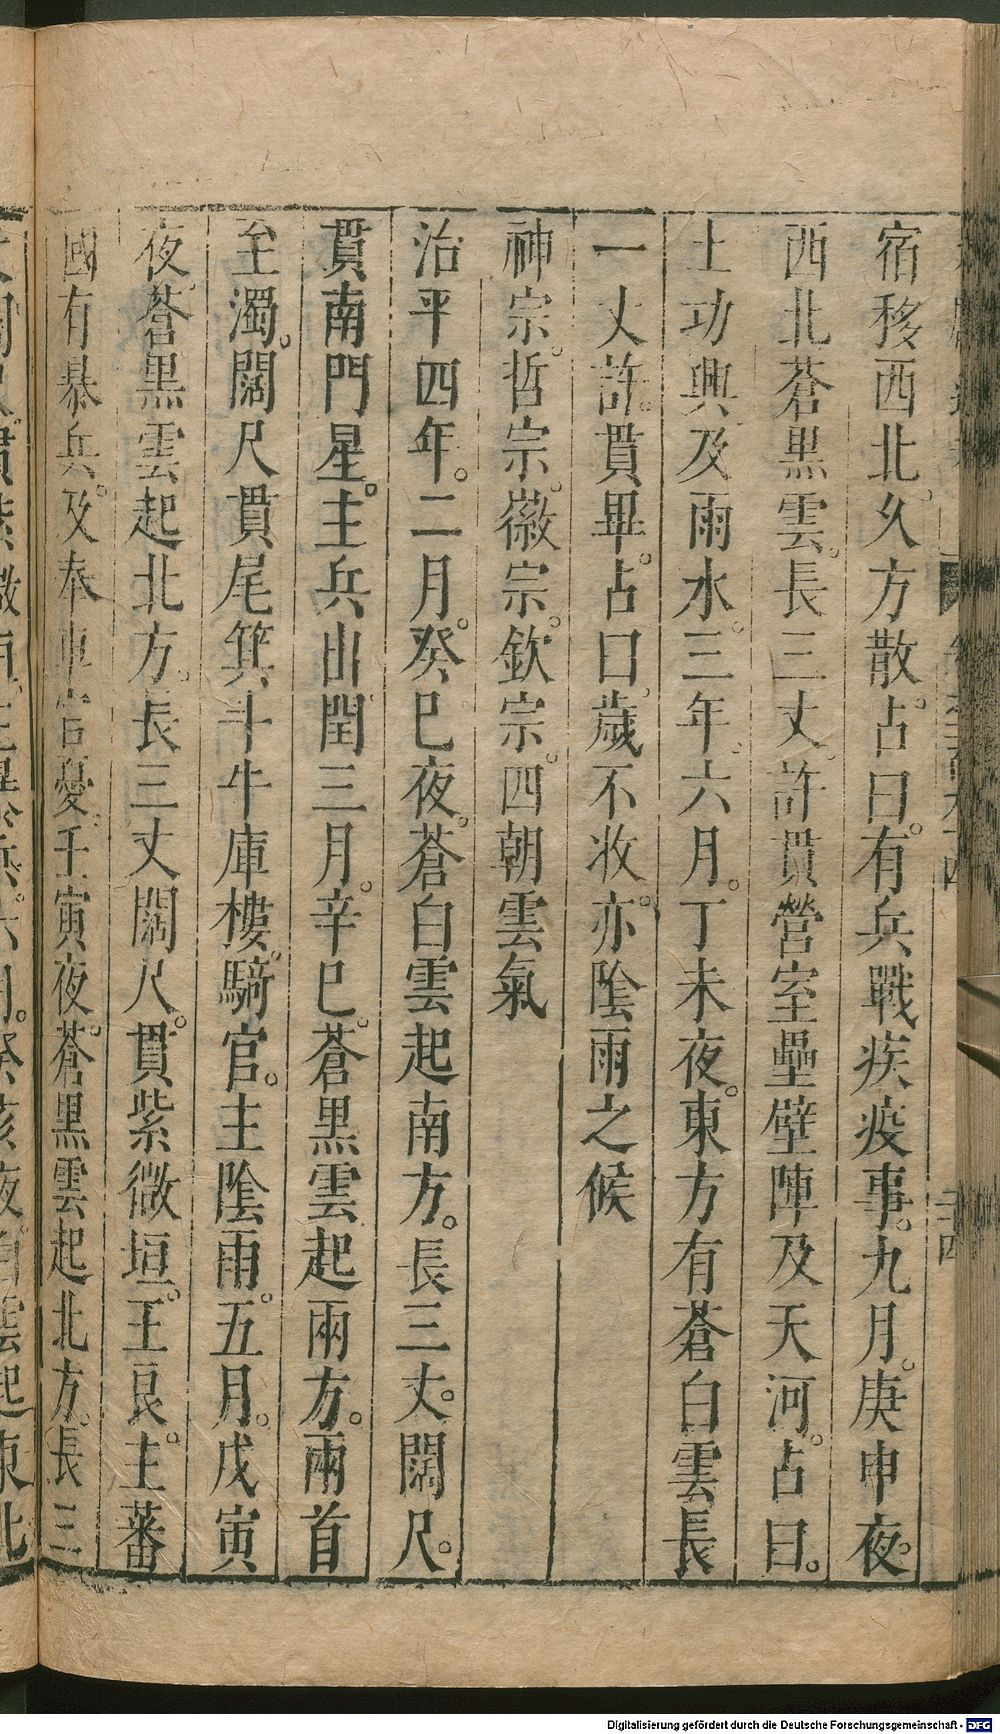 宿移西北。久方散。占曰。有兵戰疾疫事。九月。庚申夜。
西北蒼黑雲。長三丈。許貫營室壘壁陣及天河。占曰。
土功興及雨水。三年。六月。丁未夜。東方有蒼白雲長
一丈許。貫畢。占曰。歲不收。亦陰雨之候
神宗。哲宗。徽宗。欽宗。四朝雲氣
治平四年。二月。癸巳夜。蒼白雲起南方。長三丈。闊尺。
貫南門星。主兵出。閏三月。辛巳。蒼黑雲起兩方。兩首
至濁。闊尺貫尾箕斗牛庫樓。騎官。主陰雨。五月。戊寅
夜。蒼黑雲起北方。長三丈闊尺。貫紫微垣。王良。主蕃
國有暴兵。及奉車官憂。壬寅夜。蒼黑雲起北方。長三
雲起東北
Digitalisierung gefördert durch die Deutsche Forschungsgemeinschaft - DFG